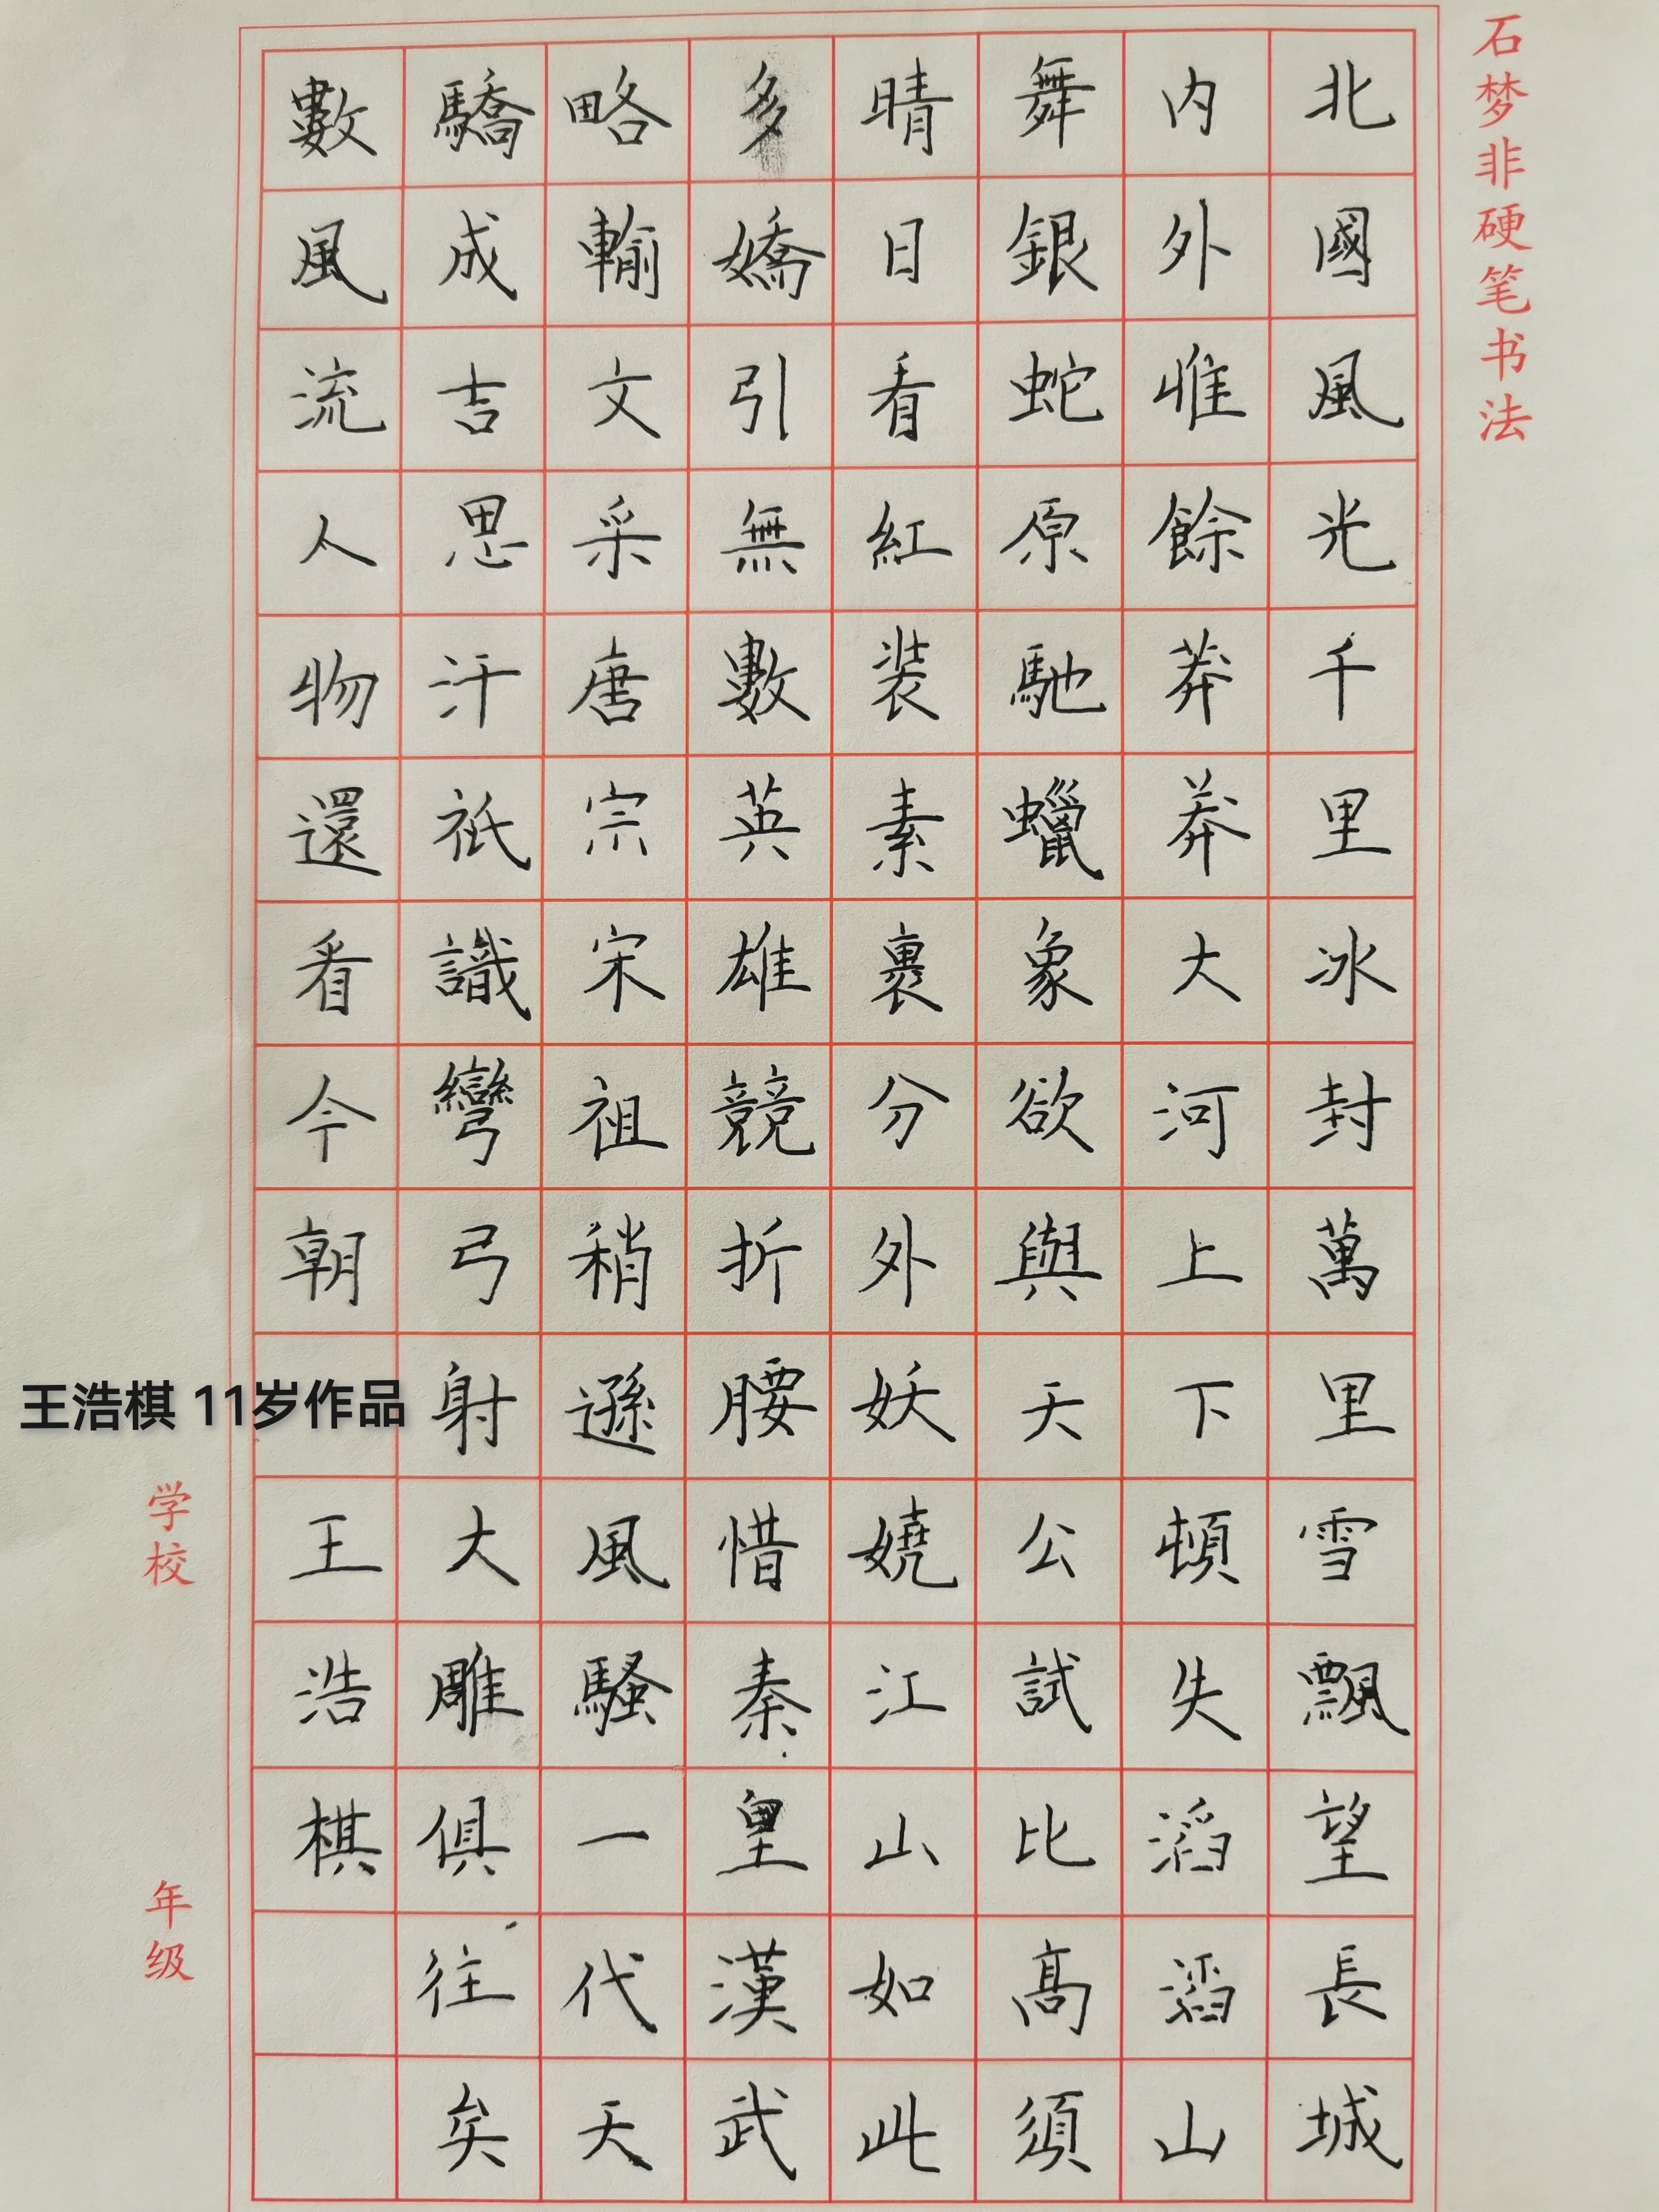 石梦非硬笔书法
北國風光千里冰封萬里雪飄望長城
内外惟餘莽莽大河上下頓失滔滔山
舞銀蛇原馳蠟象欲與天公試比高須
晴日看紅装素裹分外妖嬈江山如此
多嬌引無數英雄競折腰惜秦皇漢武
略輸文采唐宗宋祖稍遜風騷一代天
驕成吉思汗祇識彎弓射大雕俱往矣
數風流人物還看今朝
王浩棋
王浩棋 11岁作品
学校
年级